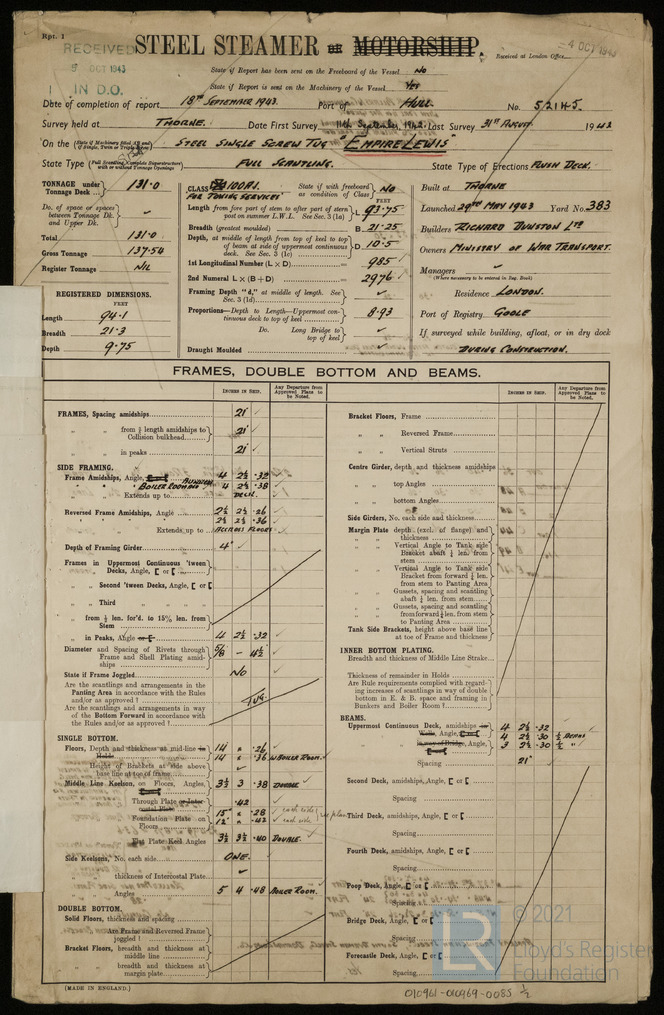 Rpt. 1
RECEIVED
5 OCT 1943
IN D.O.
STEEL STEAMER OR MOTORSHIP.
4 OCT 1943
Received at London Office
State if Report has been sent on the Freeboard of the Vessel No
State if Report is sent on the Machinery of the Vessel Yes
Date of completion of report 18th September 1943. Port of Hull. No. 52145.
Survey held at Thorne. Date First Survey 11th September, 1942. Last Survey 31st August 1943
On the (State if Machinery fitted Aft and if Single, Twin or Triple Screw) Steel Single Screw Tug "Empire Lewis"
State Type (Full Scantling, Complete Superstructure with or without Tonnage Openings) Full Scantling. State Type of Erections Flush Deck.
TONNAGE under Tonnage Deck 131.0
Do. of space or spaces between Tonnage Dk. and Upper Dk.
Total 131.0
Gross Tonnage 137.54
Register Tonnage Nil
REGISTERED DIMENSIONS.
FEET
Length 94.1
Breadth 21.3
Depth 9.75
CLASS 100A1. State if with freeboard as condition of Class No
For Towing Services
FEET
Length from fore part of stem to after part of stern post on summer L.W.L. See Sec. 3 (1a) L 93.75
Breadth (greatest moulded) B 21.25
Depth, at middle of length from top of keel to top of beam at side of uppermost continuous deck. See Sec. 3 (1c) D 10.5
1st Longitudinal Number (L × D) = 985
2nd Numeral L × (B + D) = 2976
Framing Depth "d," at middle of length. See Sec. 3 (1d)
Proportions—Depth to Length—Uppermost continuous deck to top of keel 8.93
Do. Long Bridge to top of keel
Draught Moulded
Built at Thorne
Launched 29th May 1943 Yard No. 383
Builders Richard Dunston Ltd
Owners Ministry of War Transport.
Managers
(Where necessary to be entered in Reg. Book)
Residence London.
Port of Registry Goole
If surveyed while building, afloat, or in dry dock
During Construction.
FRAMES, DOUBLE BOTTOM AND BEAMS.
INCHES IN SHIP.
Any Departure from Approved Plans to be Noted.
FRAMES, Spacing amidships 21"
" " from ⅗ length amidships to Collision bulkhead 21"
" " in peaks 21"
SIDE FRAMING.
Frame Amidships, Angle, 4 2½ .32
" " Boiler Room and Bunkers 4 2½ .38
" " Extends up to Deck.
Reversed Frame Amidships, Angle 2½ 2½ .26
2½ 2½ .36
" " Extends up to Across Floors
Depth of Framing Girder 4"
Frames in Uppermost Continuous 'tween Decks, Angle, [ or [
" Second 'tween Decks, Angle, [ or [
" Third " " "
" from ⅗ len. for'd. to 15% len. from Stem
" in Peaks, Angle or [ 4 2½ .32
Diameter and Spacing of Rivets through Frame and Shell Plating amidships 5/8 - 4½
State if Frame Joggled No
Are the scantlings and arrangements in the Panting Area in accordance with the Rules and/or as approved?
Tug.
Are the scantlings and arrangements in way of the Bottom Forward in accordance with the Rules and/or as approved?
SINGLE BOTTOM.
Floors, Depth and thickness at mid-line in Holds 14 × .26
14 × .36 W Boiler Room.
Height of Brackets at side above base line at toe of frame
Middle Line Keelson, on Floors, Angles, 3½ 3 .38 Double
" " Through Plate or Intercostal Plate .42
" " Foundation Plate on Floors 15" × .28 each side
12" × .42 each side
See plan
" " Flat Plate Keel Angles 3½ 3½ .40 Double.
Side Keelsons, No. each side One.
" " thickness of Intercostal Plate
" " Angles 5 4 .48 Boiler Room.
DOUBLE BOTTOM.
Solid Floors, thickness and spacing
" " Are Frame and Reversed Frame joggled?
Bracket Floors, breadth and thickness at middle line
" " breadth and thickness at margin plate
INCHES IN SHIP.
Any Departure from Approved Plans to be Noted.
Bracket Floors, Frame
" " Reversed Frame
" " Vertical Struts
Centre Girder, depth and thickness amidships
" " top Angles
" " bottom Angles
Side Girders, No. each side and thickness
Margin Plate depth (excl. of flange) and thickness
" " Vertical Angle to Tank side Bracket abaft ¼ len. from stem
" " Vertical Angle to Tank side Bracket from forward ¼ len. from stem to Panting Area
" " Gussets, spacing and scantling abaft ¼ len. from stem
" " Gussets, spacing and scantling from forward ¼ len. from stem to Panting Area
Tank Side Brackets, height above base line at toe of Frame and thickness
INNER BOTTOM PLATING.
Breadth and thickness of Middle Line Strake
Thickness of remainder in Holds
Are Rule requirements complied with regarding increases of scantlings in way of double bottom in E. & B. space and framing in Bunkers and Boiler Room?
BEAMS.
Uppermost Continuous Deck, amidships in Wells, Angle, 4 2½ .32
4 2½ .30 ½ Beams
in way of Bridge, Angle, 3 2½ .30 ½ "
Spacing 21"
Second Deck, amidships, Angle, [ or [
Spacing
Third Deck, amidships, Angle, [ or [
Spacing
Fourth Deck, amidships, Angle, [ or [
Spacing
Poop Deck, Angle, [ or [
Spacing
Bridge Deck, Angle, [ or [
Spacing
Forecastle Deck, Angle, [ or [
Spacing
(MADE IN ENGLAND.)
010961-010969-0085 ½
LR
© 2021
Lloyd's Register
Foundation